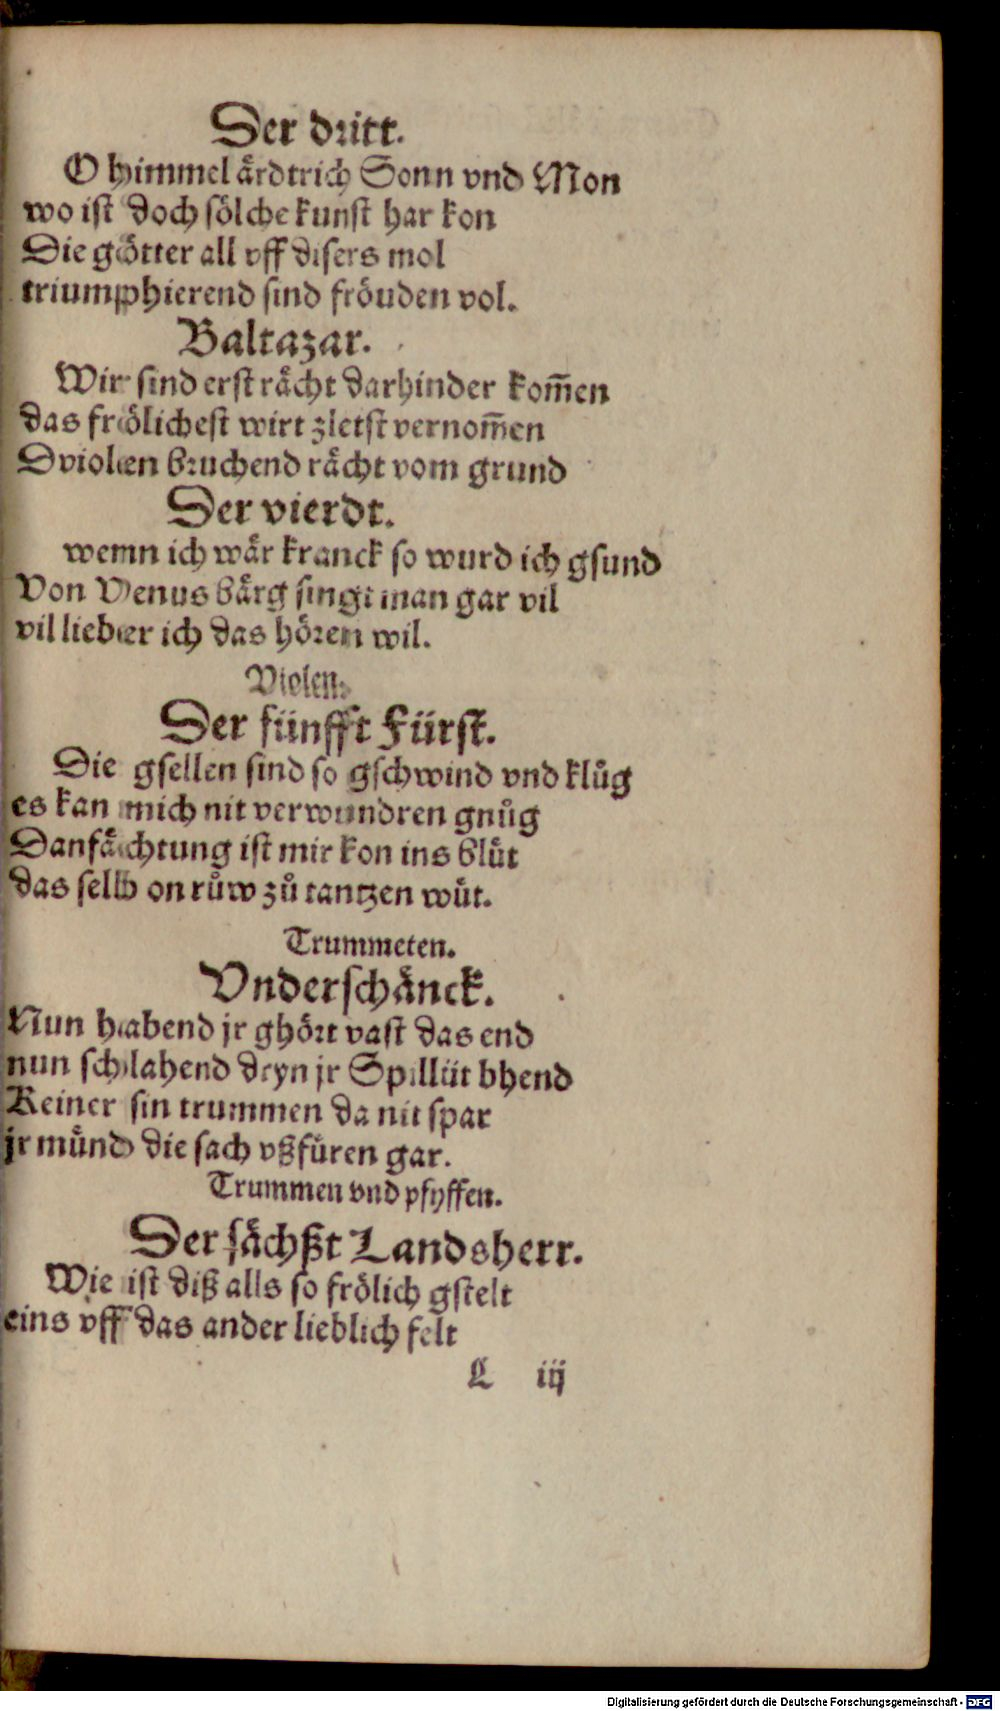 Der dritt.
O himmel aͤrdtrich Sonn vnd Mon
wo ist doch soͤlche kunst har kon
Die goͤtter all vff disers mol
triumphierend sind froͤuden vol.
Baltazar.
Wir sind erst raͤcht darhinder kom̄en
das froͤlichest wirt zletst vernom̄en
Dviolen bruchend raͤcht vom grund
Der vierdt.
wenn ich waͤr kranck so wurd ich gsund
Von Venus baͤrg singt man gar vil
vil lieber ich das hoͤren wil.
Violen.
Der fünfft Fürst.
Die gsellen sind so gschwind vnd kluͦg
es kan mich nit verwundren gnuͦg
Danfaͤchtung ist mir kon ins bluͤt
das selb on ruͦw zuͦ tantzen wuͤt.
Trummeten.
Vnderschaͤnck.
Nun habend jr ghoͤrt vast das end
nun schlahend dryn jr Spillüt bhend
Keiner sin trummen da nit spar
jr muͤnd die sach vßfuͤren gar.
Trummen vnd pfyffen.
Der saͤchßt Landsherr.
Wie ist diß alls so froͤlich gstelt
eins vff das ander lieblich felt
L iij
Digitalisierung gefördert durch die Deutsche Forschungsgemeinschaft - DFG